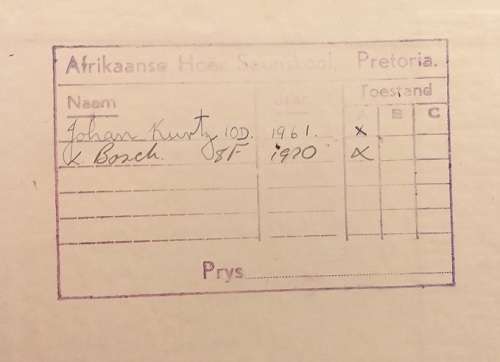 Afrikaanse Hoër Seunskool, Pretoria.
Naam Jaar Toestand
B C
Johan Kurtz 10D. 1961. x
Bosch. 8F 1970 x
Prys